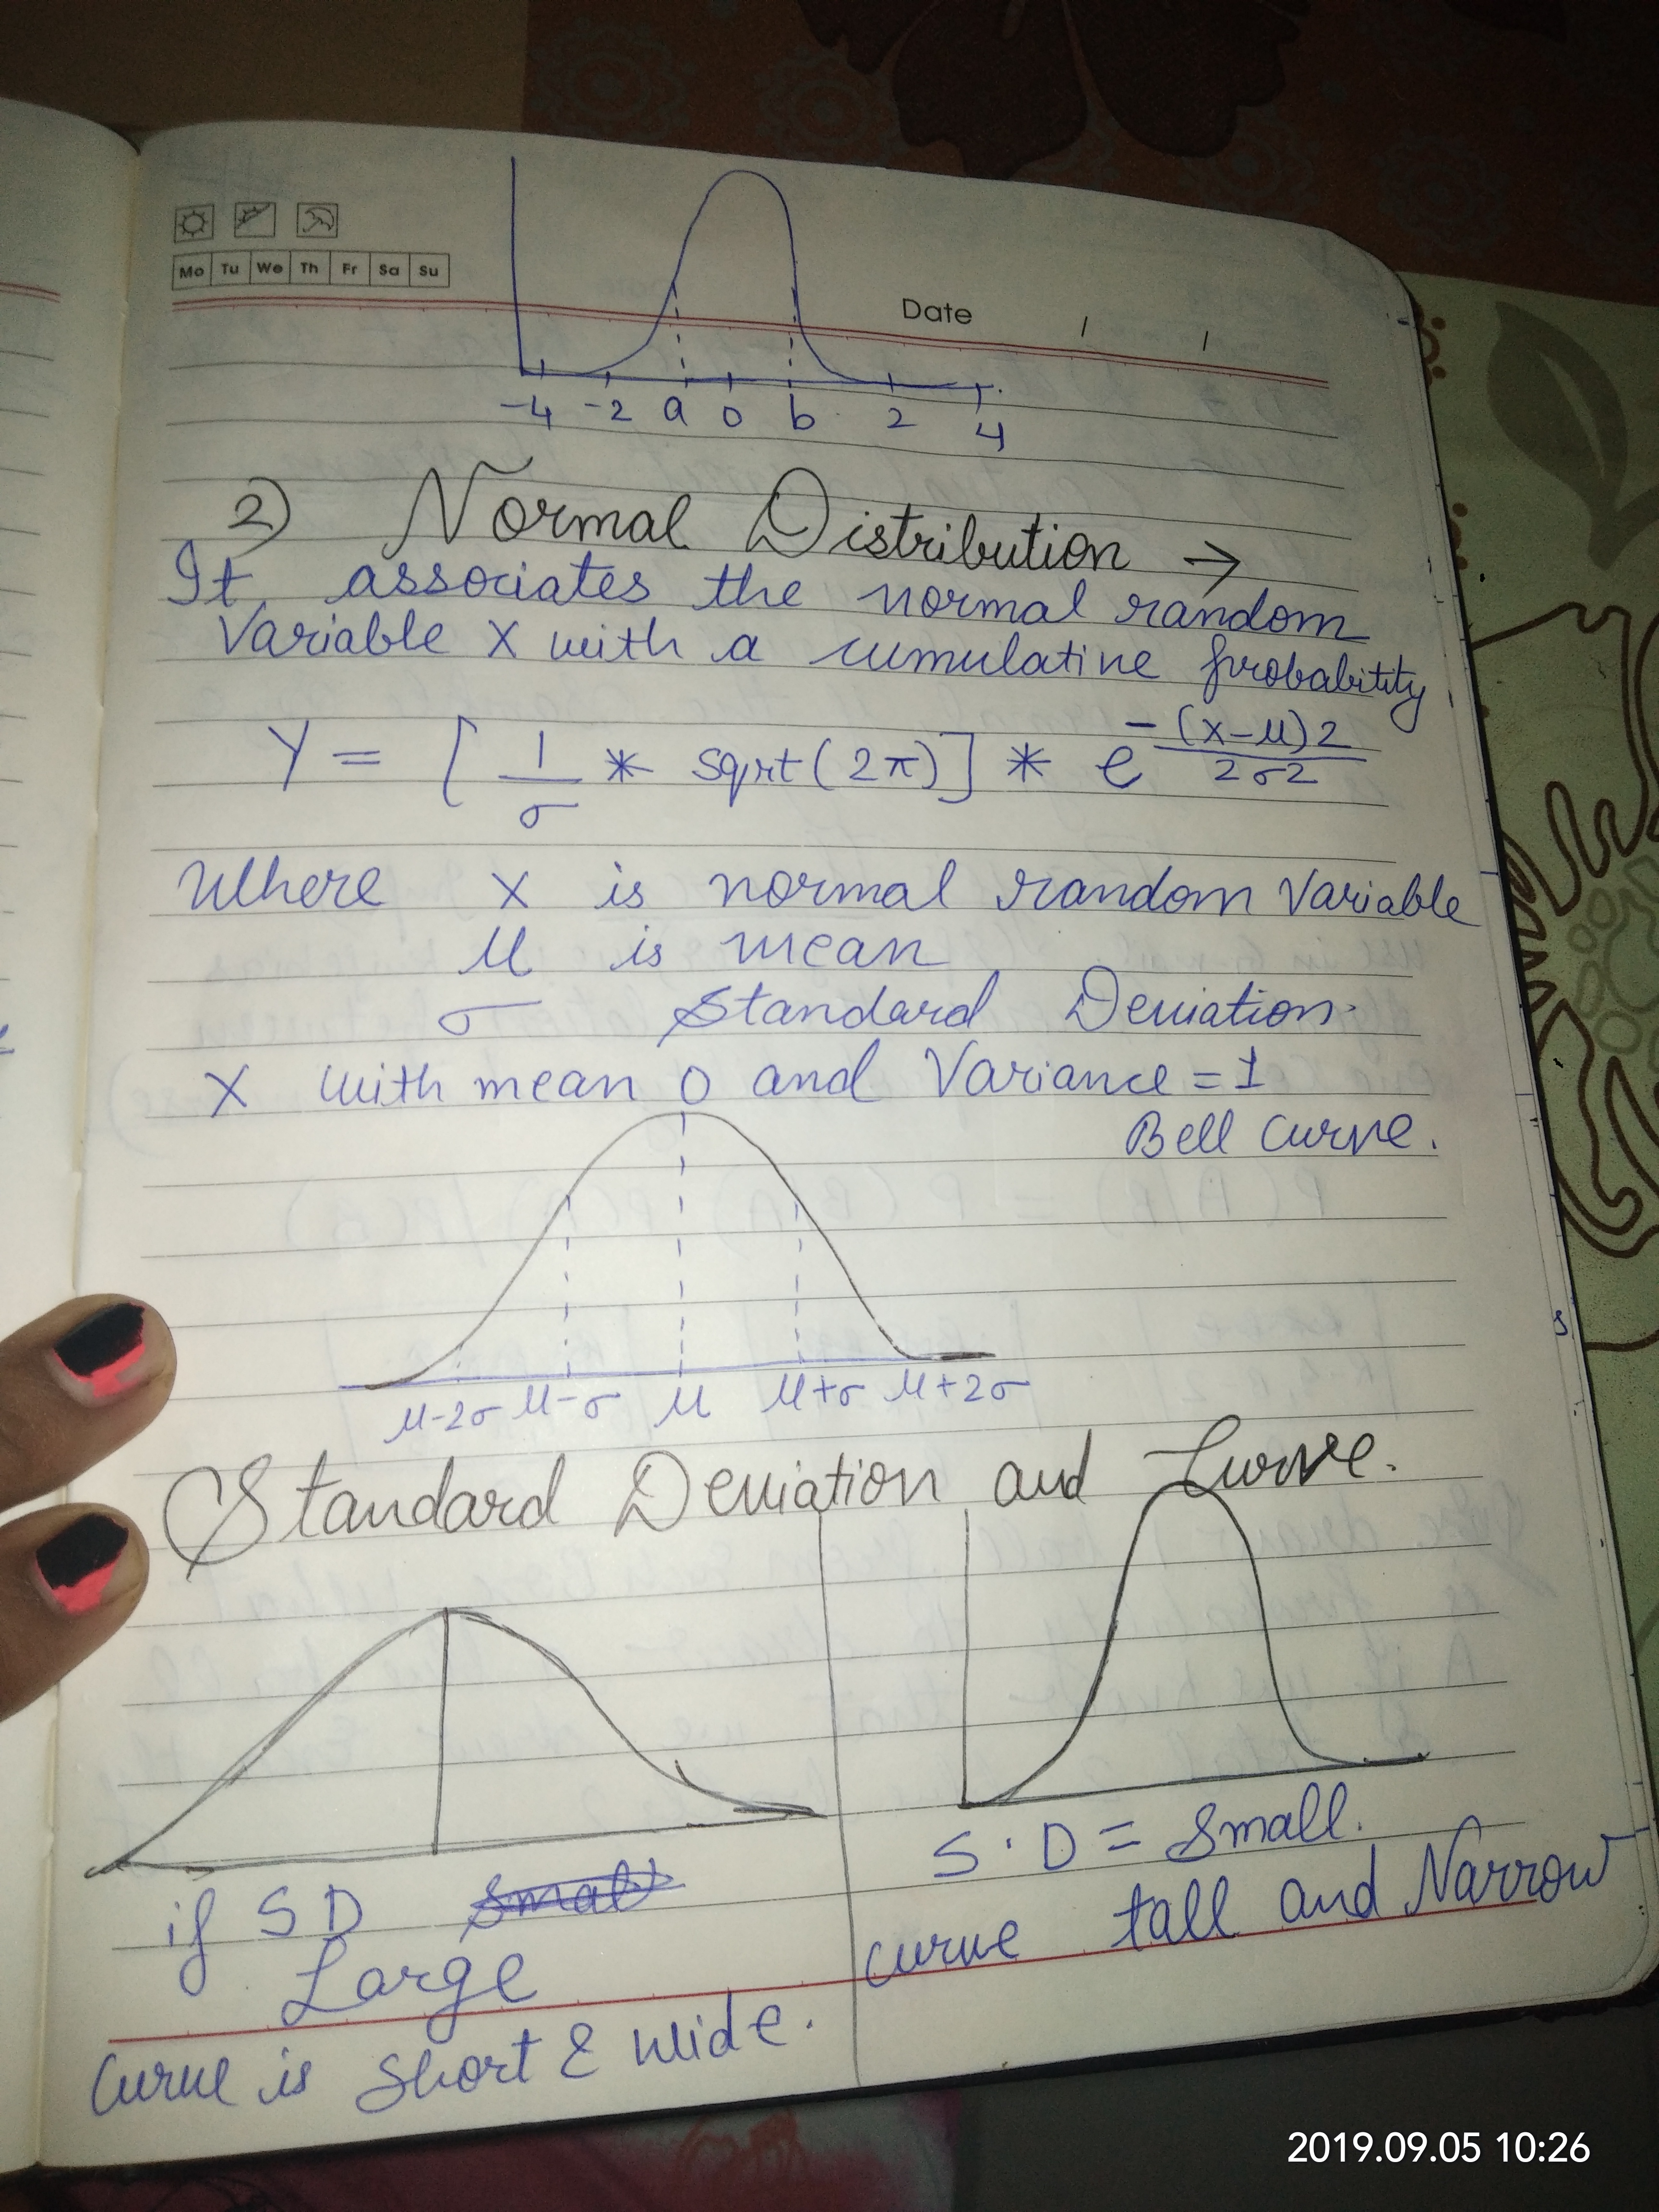 Mo Tu We Th Fr Sa Su
Date / /
-4 -2 a 0 b 2 4
2) Normal Distribution →
It associates the normal random
Variable X with a cumulative probabitity
Y = [ 1/σ * sqrt(2π) ] * e -(x-μ)2/2σ2
Where X is normal random variable
μ is mean
σ Standard Deviation.
X with mean 0 and Variance = 1
Bell Curve.
μ-2σ μ-σ μ μ+σ μ+2σ
Standard Deviation and Curve.
if SD small
Large
Curve is Short & wide.
S.D = Small.
curve tall and Narrow
2019.09.05 10:26